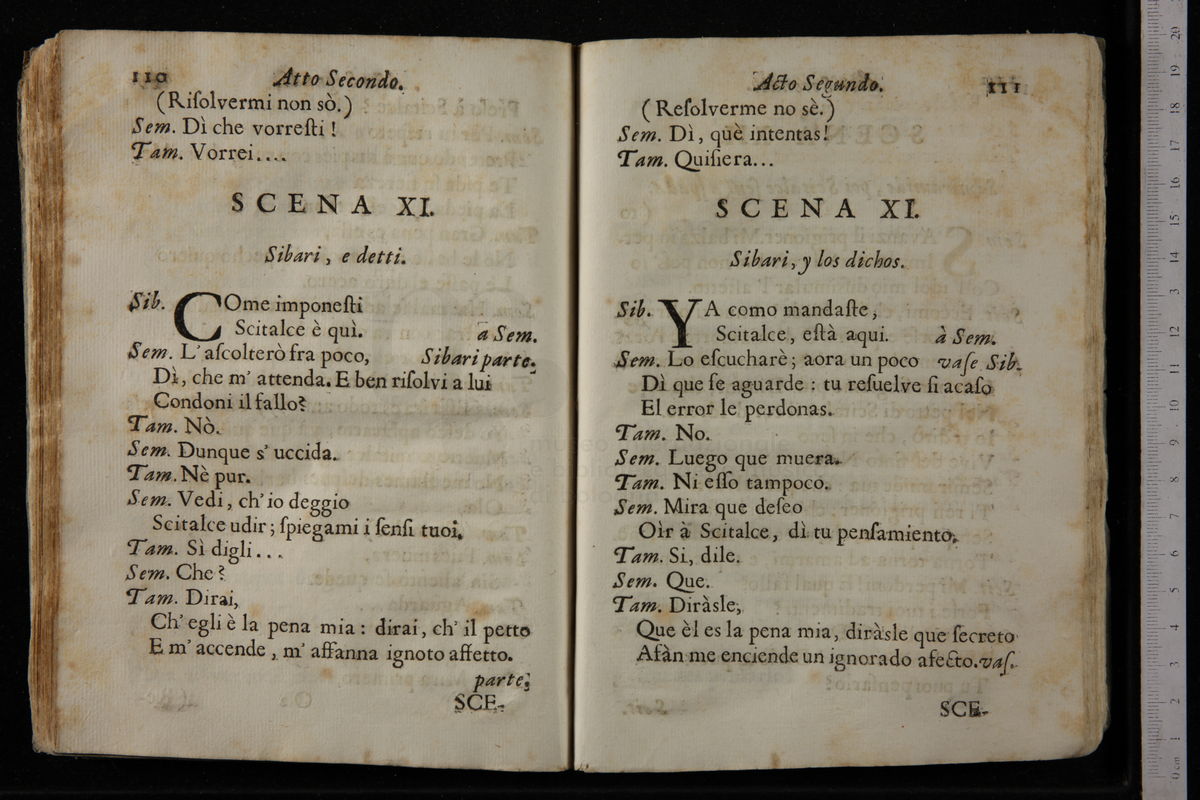 110 Atto Secondo.
(Riſolvermi non sò.)
Sem. Dì che vorreſti !
Tam. Vorrei....
SCENA XI.
Sibari, e detti.
Sib. COme imponeſti
Scitalce è quì. a Sem.
Sem. L' aſcolterò fra poco, Sibari parte.
Dì, che m' attenda. E ben riſolvi a lui
Condoni il fallo?
Tam. Nò.
Sem. Dunque s' uccida.
Tam. Nè pur.
Sem. Vedi, ch' io deggio
Scitalce udir; ſpiegami i ſenſi tuoi.
Tam. Sì digli...
Sem. Che?
Tam. Dirai,
Ch' egli è la pena mia: dirai, ch' il petto
E m' accende, m' affanna ignoto affetto.
parte.
SCE-
Acto Segundo. 111
(Reſolverme no sè.)
Sem. Dì, què intentas!
Tam. Quiſiera...
SCENA XI.
Sibari, y los dichos.
Sib. YA como mandaſte,
Scitalce, eſtà aqui. à Sem.
Sem. Lo eſcucharè; aora un poco vaſe Sib.
Dì que ſe aguarde: tu reſuelve ſi acaſo
El error le perdonas.
Tam. No.
Sem. Luego que muera.
Tam. Ni eſſo tampoco.
Sem. Mira que deſeo
Oìr à Scitalce, dì tu penſamiento.
Tam. Si, dile.
Sem. Que.
Tam. Diràsle,
Que èl es la pena mia, diràsle que ſecreto
Afàn me enciende un ignorado afecto. vaſ.
SCE-